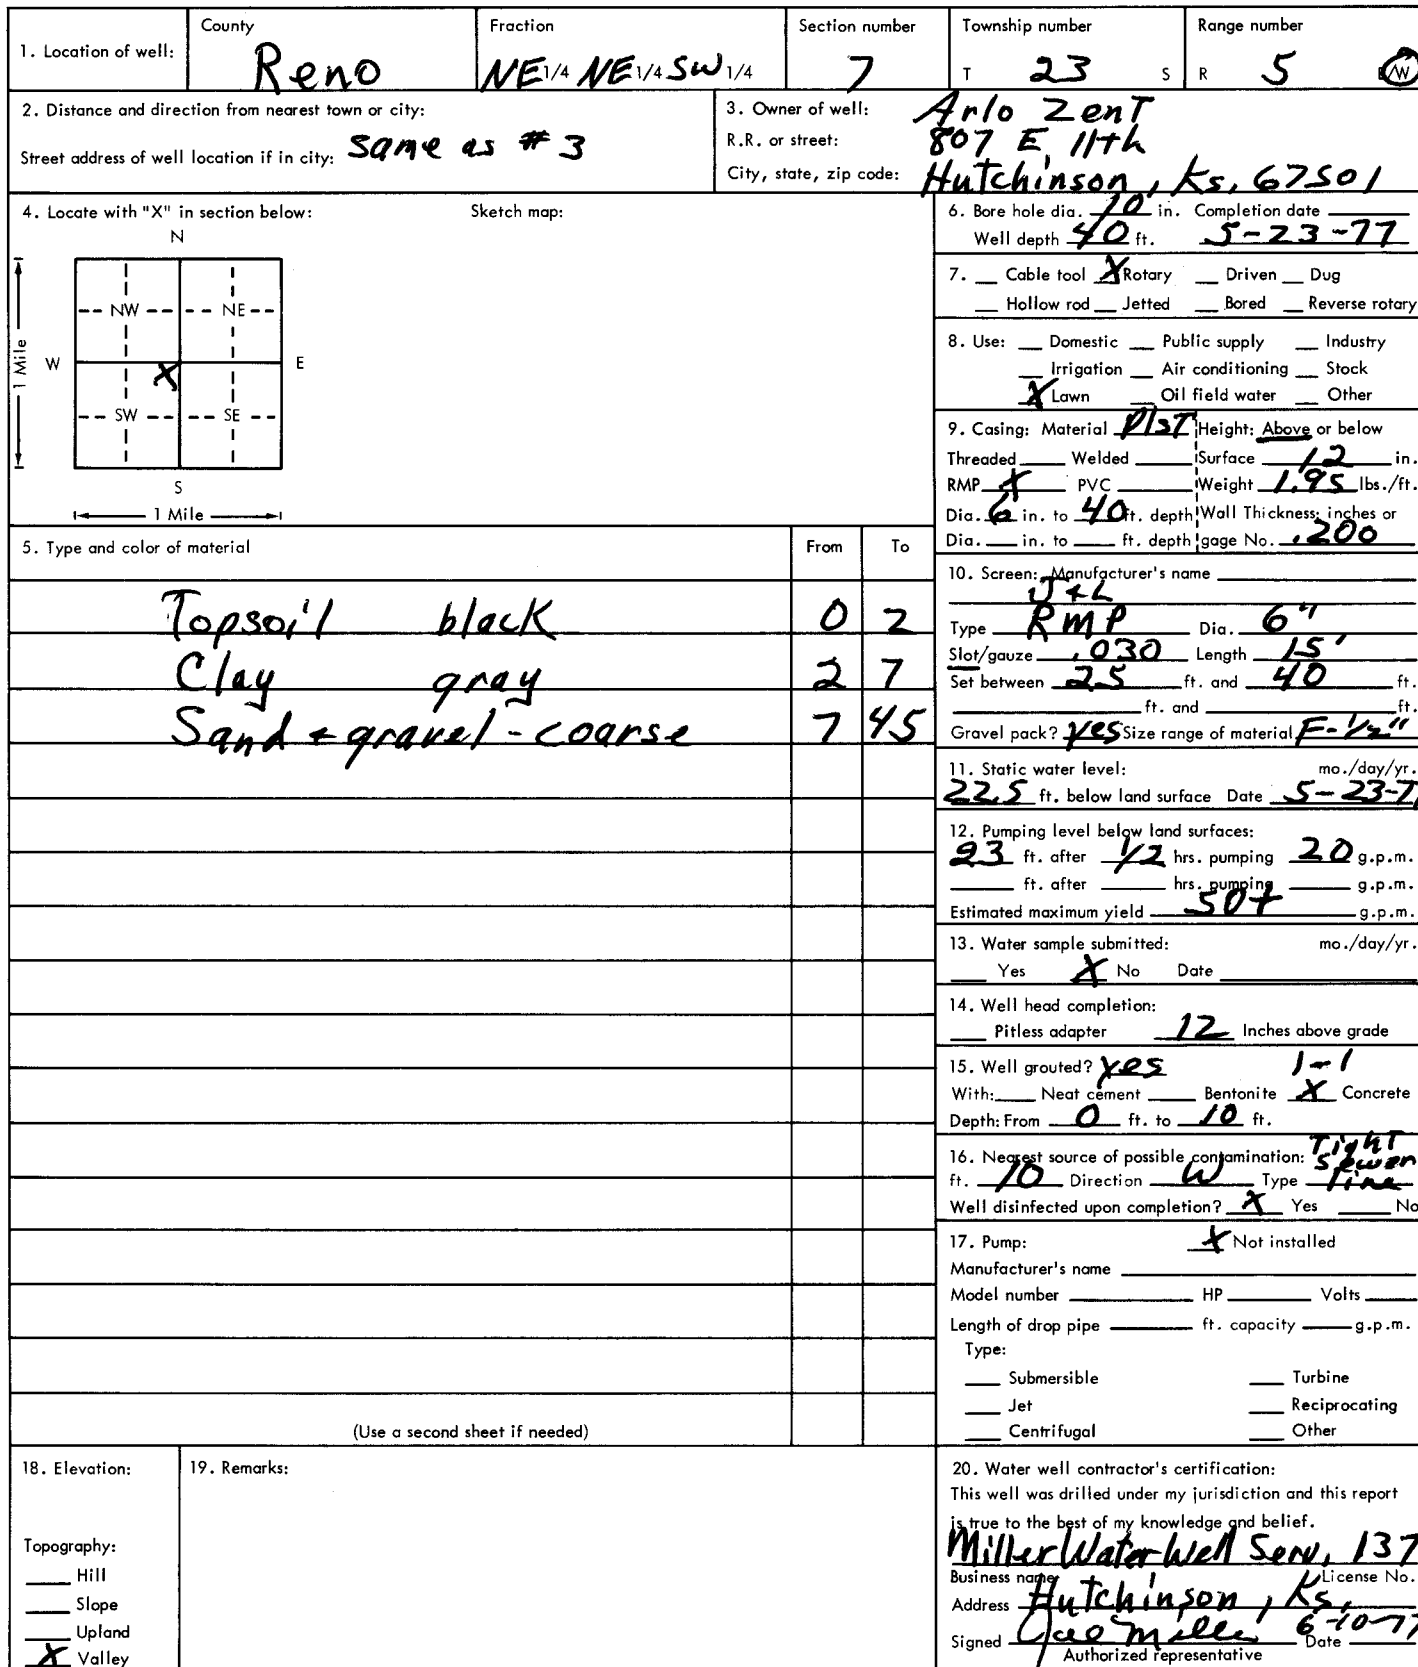 1. Location of well:
County
Reno
Fraction
NE 1/4 NE 1/4 SW 1/4
Section number
7
Township number
T 23 S
Range number
R 5 E/W
2. Distance and direction from nearest town or city:
Street address of well location if in city: same as # 3
3. Owner of well: Arlo Zent
R.R. or street: 807 E. 11th
City, state, zip code: Hutchinson, Ks, 67501
4. Locate with "X" in section below:
Sketch map:
N
NW NE
W X E
SW SE
S
1 Mile
1 Mile
5. Type and color of material From To
Topsoil black 0 2
Clay gray 2 7
Sand + gravel - coarse 7 45
(Use a second sheet if needed)
6. Bore hole dia. 10 in. Completion date
Well depth 40 ft. 5-23-77
7. Cable tool X Rotary Driven Dug
Hollow rod Jetted Bored Reverse rotary
8. Use: Domestic Public supply Industry
Irrigation Air conditioning Stock
X Lawn Oil field water Other
9. Casing: Material Plst Height: Above or below
Threaded Welded Surface 12 in.
RMP X PVC Weight 1.95 lbs./ft.
Dia. 6 in. to 40 ft. depth Wall Thickness: inches or
Dia. in. to ft. depth gage No. .200
10. Screen: Manufacturer's name
J + L
Type RMP Dia. 6"
Slot/gauze .030 Length 15'
Set between 25 ft. and 40 ft.
ft. and ft.
Gravel pack? yes Size range of material F-1/2"
11. Static water level: mo./day/yr.
22.5 ft. below land surface Date 5-23-77
12. Pumping level below land surfaces:
23 ft. after 1/2 hrs. pumping 20 g.p.m.
ft. after hrs. pumping g.p.m.
Estimated maximum yield 50+ g.p.m.
13. Water sample submitted: mo./day/yr.
Yes X No Date
14. Well head completion:
Pitless adapter 12 Inches above grade
15. Well grouted? yes 1-1
With: Neat cement Bentonite X Concrete
Depth: From 0 ft. to 10 ft.
16. Nearest source of possible contamination: Tight
sewer
ft. 10 Direction W Type line
Well disinfected upon completion? X Yes No
17. Pump: X Not installed
Manufacturer's name
Model number HP Volts
Length of drop pipe ft. capacity g.p.m.
Type:
Submersible Turbine
Jet Reciprocating
Centrifugal Other
18. Elevation:
Topography:
Hill
Slope
Upland
X Valley
19. Remarks:
20. Water well contractor's certification:
This well was drilled under my jurisdiction and this report
is true to the best of my knowledge and belief.
Miller Water Well Serv, 137
Business name License No.
Address Hutchinson, Ks.
Signed Joe Miller Date 6-10-77
Authorized representative